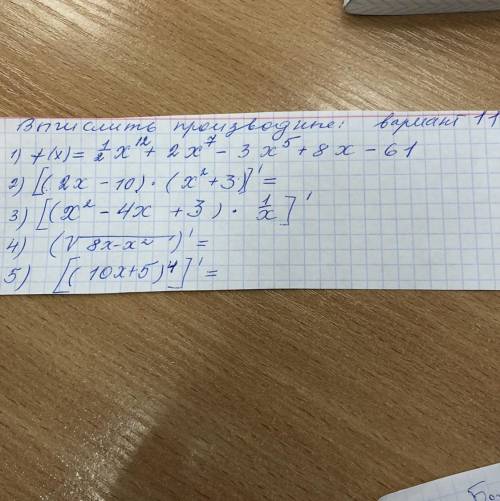 Вычислить производные: вариант 11
1) f(x) = 1/2 x¹² + 2x⁷ - 3x⁵ + 8x - 61
2) [(2x - 10) · (x² + 3)]' =
3) [(x² - 4x + 3) · 1/x]'
4) (√(8x-x²))' =
5) [(10x+5)⁴]' =